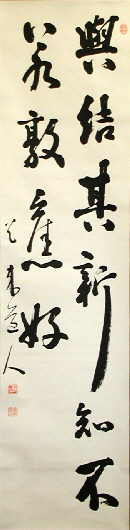 與結其新知不
若敦舊好
人